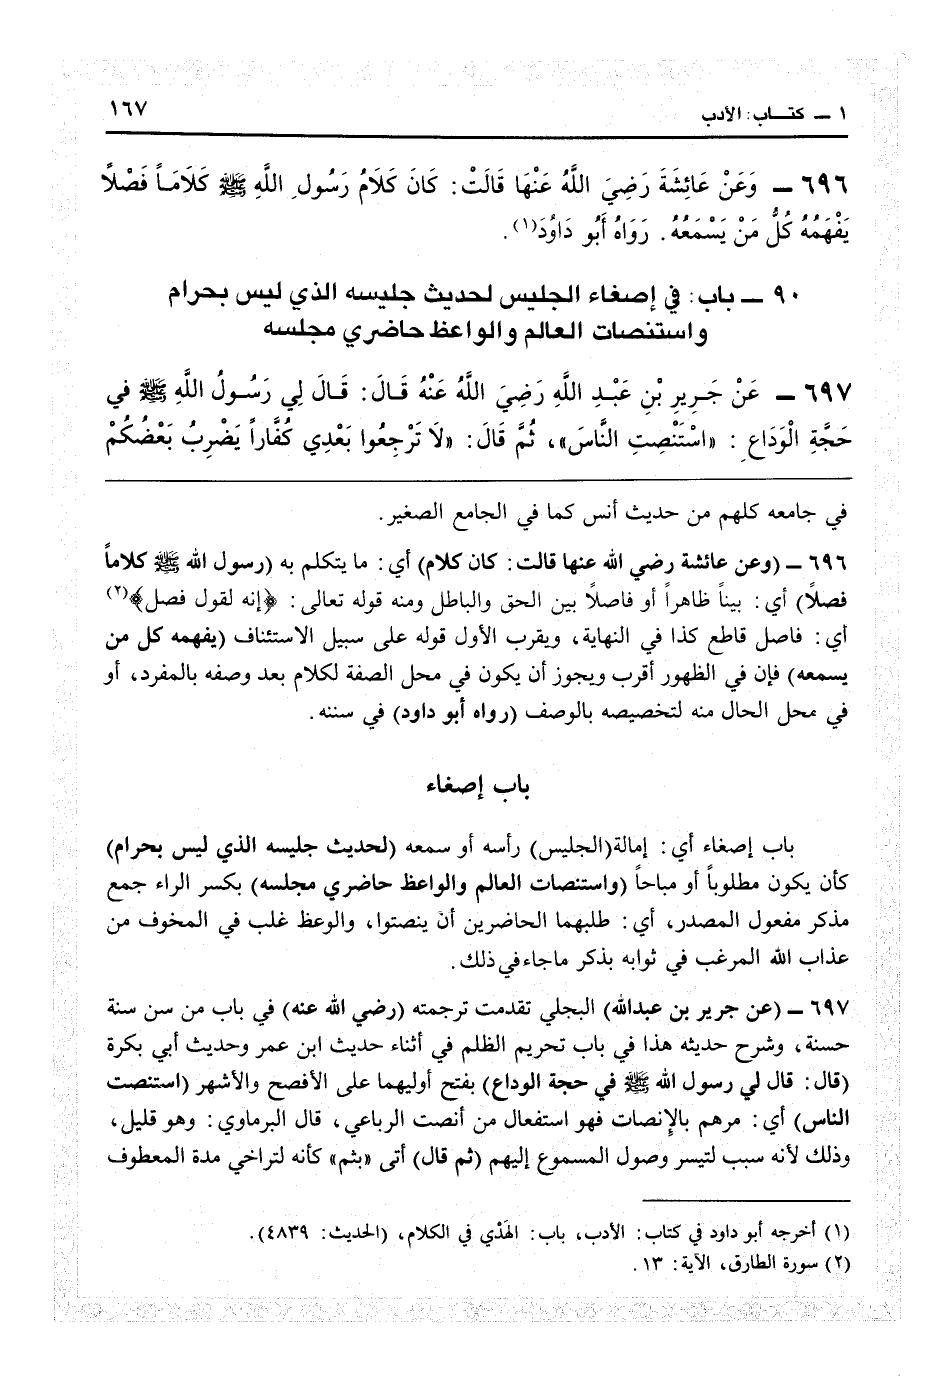 ١ ـ كتـــاب: الأدب
١٦٧
٦٩٦ ـ وَعَنْ عَائِشَةَ رَضِيَ اللَّهُ عَنْهَا قَالَتْ: كَانَ كَلَامُ رَسُولِ اللَّهِ ﷺ كَلَامَاً فَصْلًا
يَفْهَمُهُ كُلُّ مَنْ يَسْمَعُهُ. رَوَاهُ أَبُو دَاوُدَ(١).
٩٠ ـ باب: في إصغاء الجليس لحديث جليسه الذي ليس بحرام
واستنصات العالم والواعظ حاضري مجلسه
٦٩٧ ـ عَنْ جَرِيرِ بْنِ عَبْدِ اللَّهِ رَضِيَ اللَّهُ عَنْهُ قَالَ: قَالَ لِي رَسُولُ اللَّهِ ﷺ فِي
حَجَّةِ الْوَدَاعِ: «اسْتَنْصِتِ النَّاسَ»، ثُمَّ قَالَ: «لَا تَرْجِعُوا بَعْدِي كُفَّاراً يَضْرِبُ بَعْضُكُمْ
في جامعه كلهم من حديث أنس كما في الجامع الصغير.
٦٩٦ ـ (وعن عائشة رضي الله عنها قالت: كان كلام) أي: ما يتكلم به (رسول الله ﷺ كلاماً
فصلًا) أي: بيناً ظاهراً أو فاصلًا بين الحق والباطل ومنه قوله تعالى: ﴿إنه لقول فصل﴾(٢)
أي: فاصل قاطع كذا في النهاية، ويقرب الأول قوله على سبيل الاستئناف (يفهمه كل من
يسمعه) فإن في الظهور أقرب ويجوز أن يكون في محل الصفة لكلام بعد وصفه بالمفرد، أو
في محل الحال منه لتخصيصه بالوصف (رواه أبو داود) في سننه.
باب إصغاء
باب إصغاء أي: إمالة(الجليس) رأسه أو سمعه (لحديث جليسه الذي ليس بحرام)
كأن يكون مطلوباً أو مباحاً (واستنصات العالم والواعظ حاضري مجلسه) بكسر الراء جمع
مذكر مفعول المصدر، أي: طلبهما الحاضرين أنْ ينصتوا، والوعظ غلب في المخوف من
عذاب الله المرغب في ثوابه بذكر ماجاءفي ذلك.
٦٩٧ ـ (عن جرير بن عبدالله) البجلي تقدمت ترجمته (رضي الله عنه) في باب من سن سنة
حسنة، وشرح حديثه هذا في باب تحريم الظلم في أثناء حديث ابن عمر وحديث أبي بكرة
(قال: قال لي رسول الله ﷺ في حجة الوداع) بفتح أوليهما على الأفصح والأشهر (استنصت
الناس) أي: مرهم بالإنصات فهو استفعال من أنصت الرباعي، قال البرماوي: وهو قليل،
وذلك لأنه سبب لتيسر وصول المسموع إليهم (ثم قال) أتى «بثم» كأنه لتراخي مدة المعطوف
(١) أخرجه أبو داود في كتاب: الأدب، باب: الهَدْي في الكلام، (الحديث: ٤٨٣٩).
(٢) سورة الطارق، الآية: ١٣.